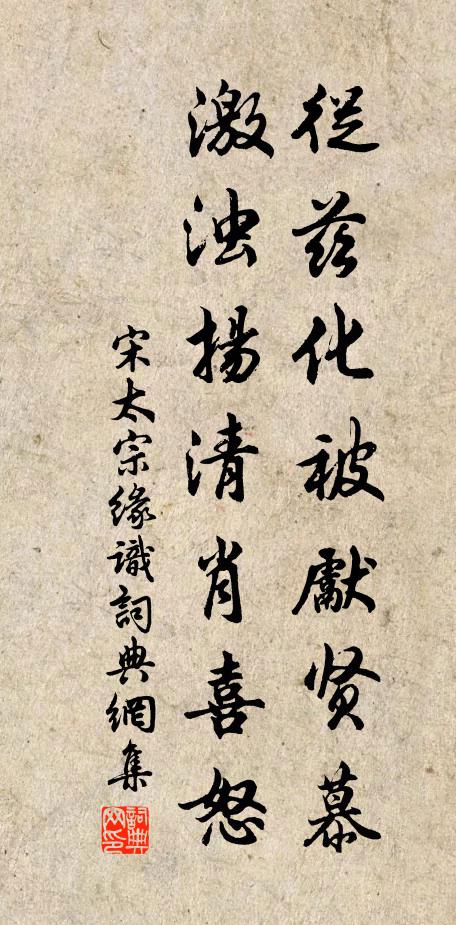 從茲化被獻贤慕
激浊揚清肖喜怒
宋太宗缘識詞典網集
詞典网印